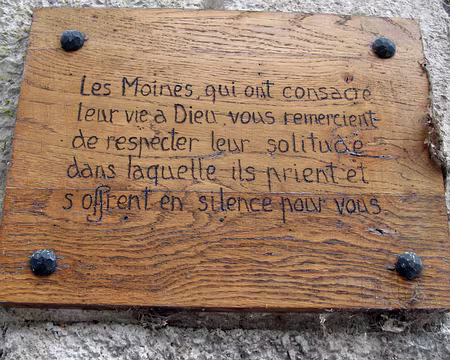 Les Moines, qui ont consacré
leur vie a Dieu vous remercient
de respecter leur solitude
dans laquelle ils prient et
s'offrent en silence pour vous.